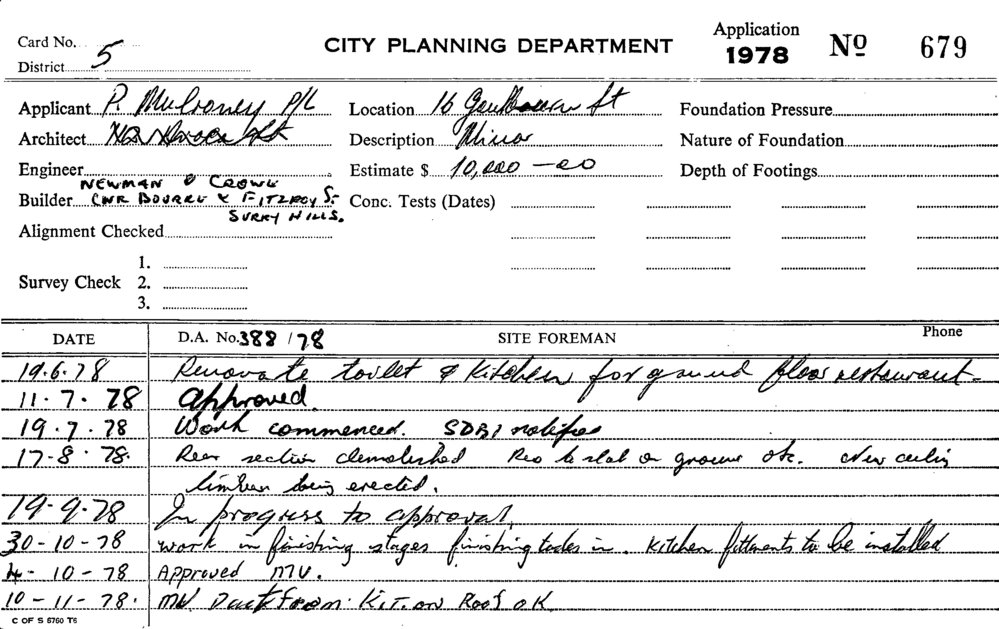 Card No. 5
District
CITY PLANNING DEPARTMENT
Application
1978 No 679
Applicant P. Mulroney P/L
Location 16 Goulbourn St
Foundation Pressure
Architect
Description Minor
Nature of Foundation
Engineer
Estimate $ 10,000-00
Depth of Footings
NEWMAN & CROWE
Builder CNR BOURKE & FITZROY St
SURRY HILLS.
Conc. Tests (Dates)
Alignment Checked
1.
Survey Check 2.
3.
DATE D.A. No. 388/78 SITE FOREMAN Phone
19.6.78 Renovate toilet & Kitchen for ground floor restaurant-
11.7.78 approved.
19.7.78 Work commenced. SDBI notified
17-8.78. Rear section demolished Reo to slab on ground ok. New ceiling
timber being erected.
19-9-78 In progress to approval.
30-10-78 work in finishing stages finishing trades in. Kitchen fittments to be installed
4-10-78 Approved MV.
10-11-78. MV Duct from Kit. on Roof OK
C OF S 6760 T6